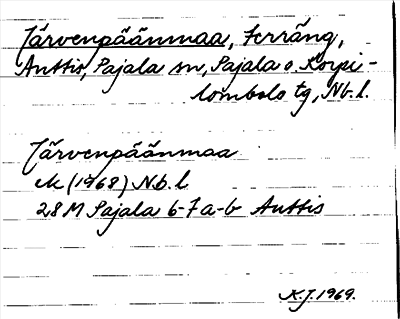 Järvenpäänmaa, terräng,
Anttis, Pajala sn, Pajala o. Korpi-
lombolo tg, Nb.l.
Järvenpäänmaa
ek (1968) Nb.l
28 M Pajala 6-7 a-b Anttis
K.J. 1969.